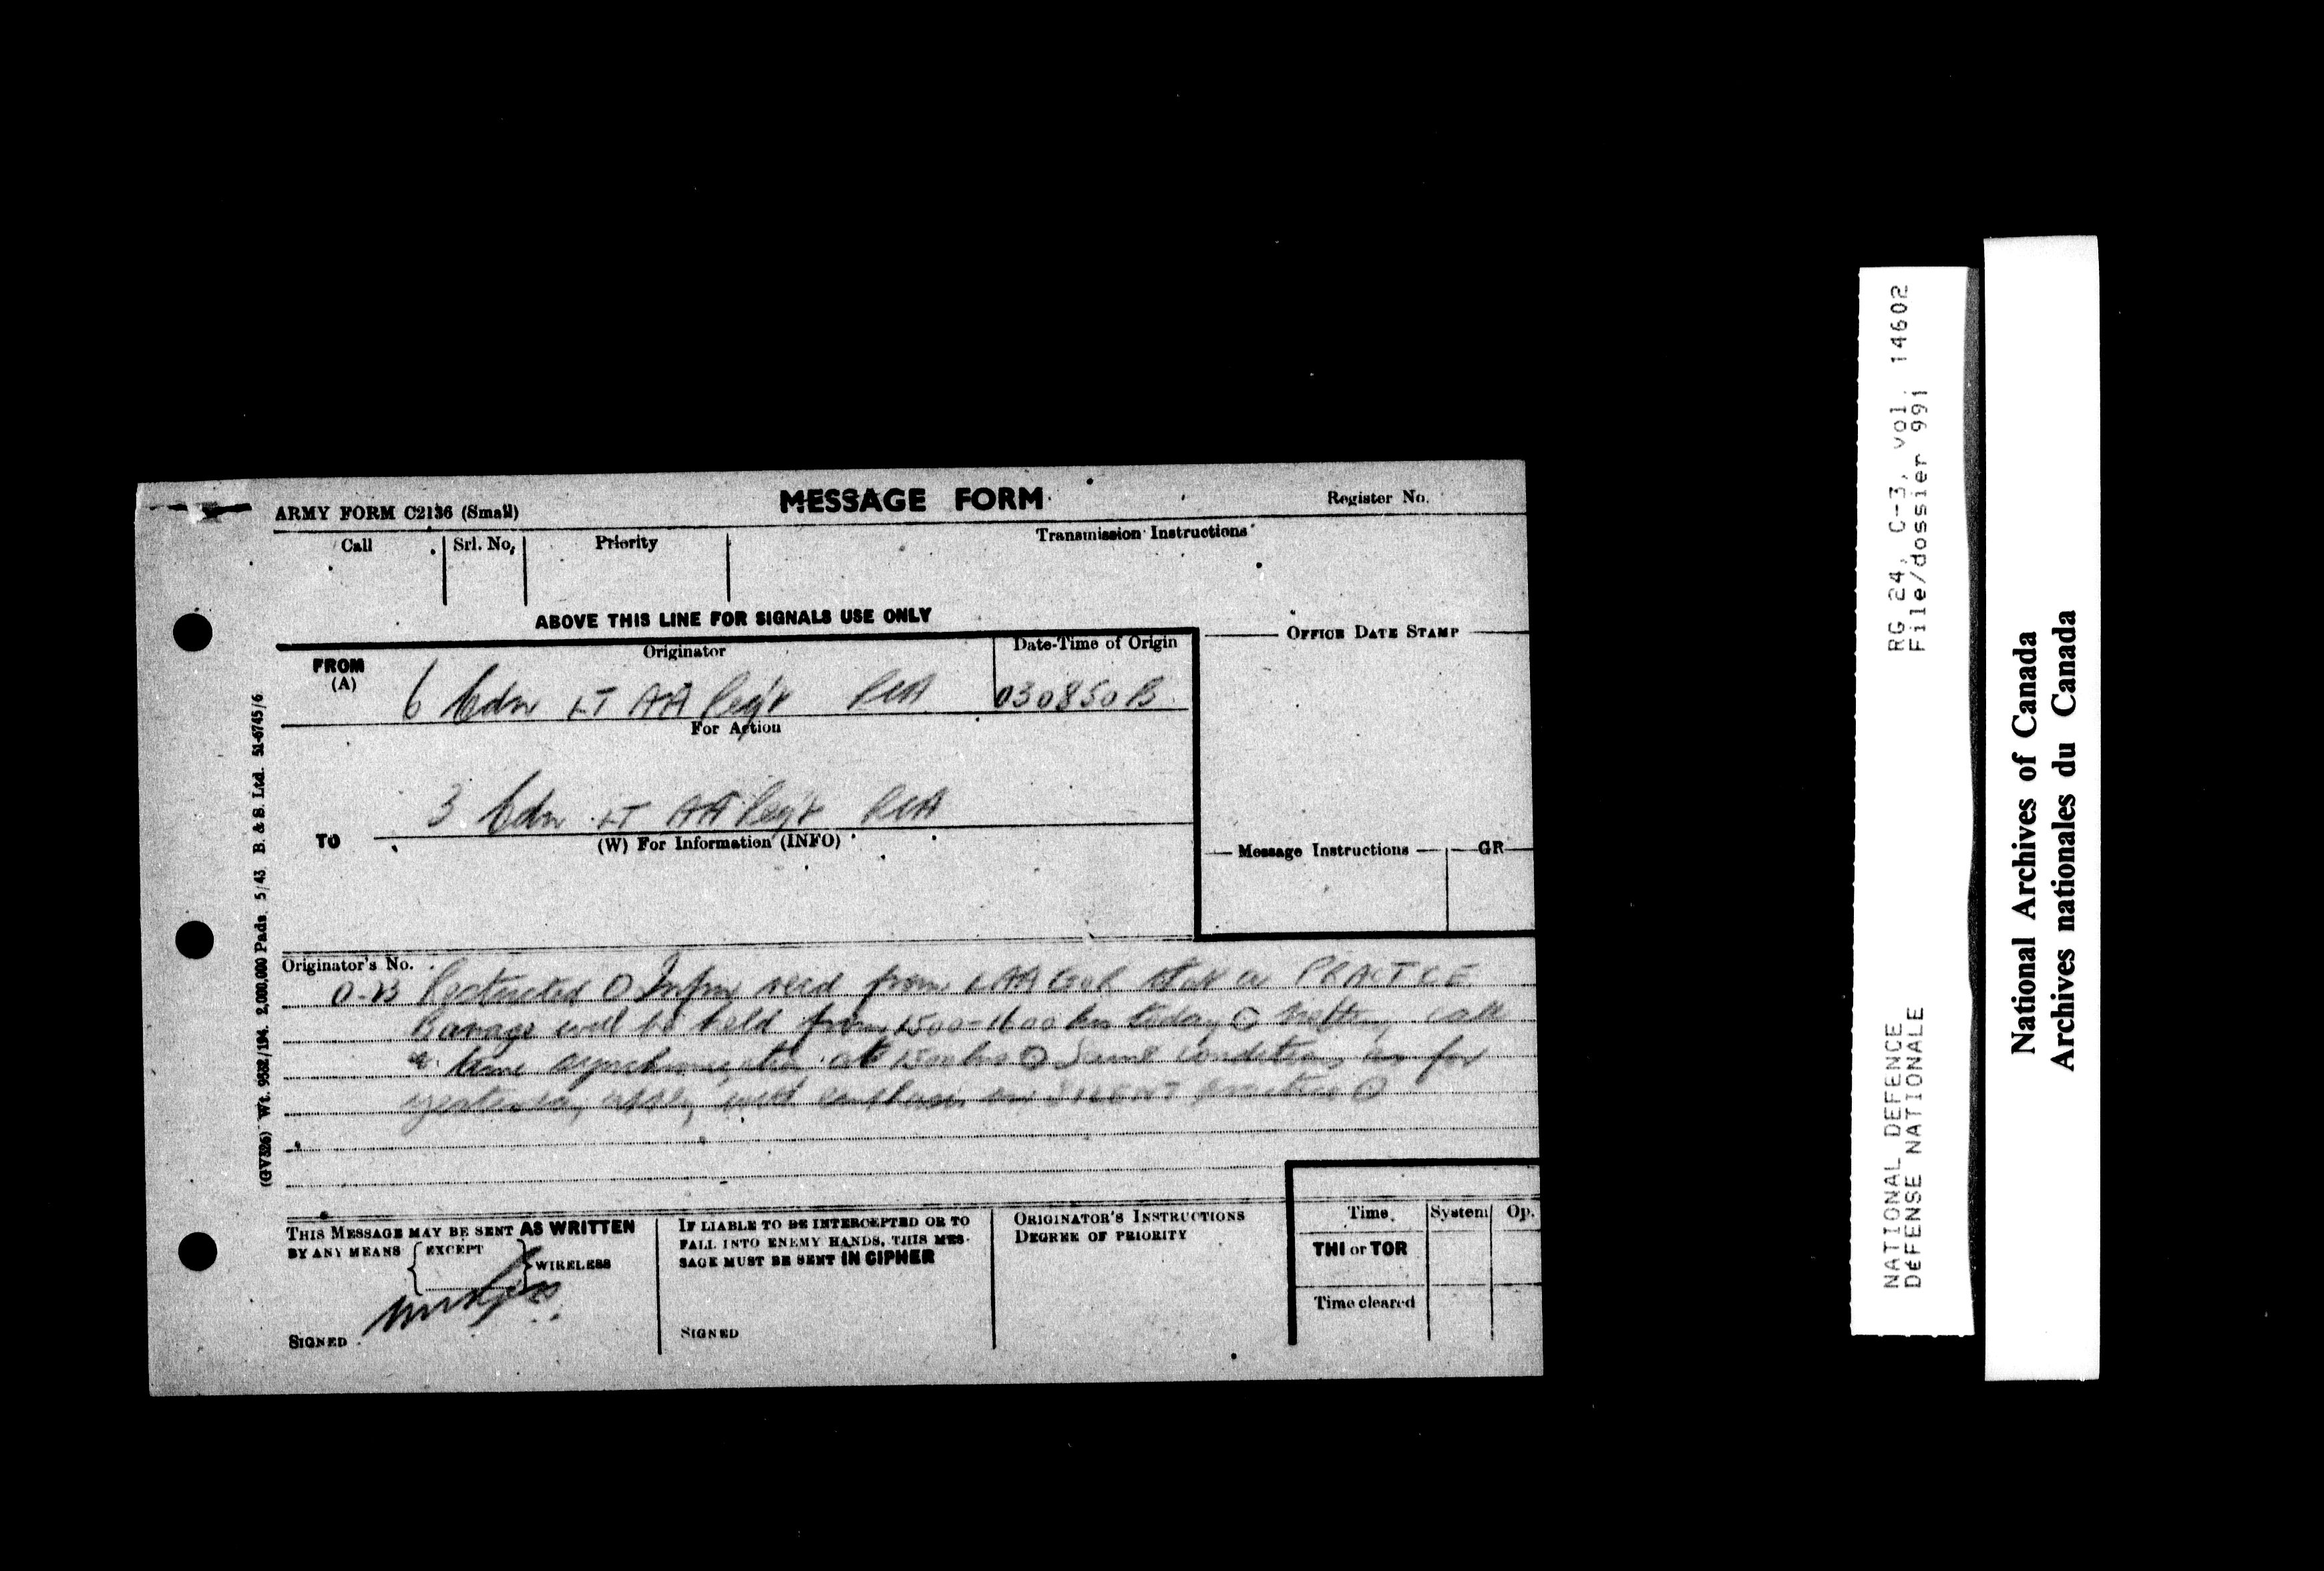 ARMY FORM C2136 (Small)
MESSAGE FORM
Register No.
Call
Srl. No.
Priority
Transmission Instructions
ABOVE THIS LINE FOR SIGNALS USE ONLY
OFFICE DATE STAMP
FROM
(A)
Originator
Date-Time of Origin
6 Cdn LT AA Reg't RCA
030850 B
For Action
3 Cdn LT AA Reg't RCA
TO
(W) For Information (INFO)
Message Instructions
GR
Originator's No.
Restricted O Infm recd from LAA that a PRACTICE
Barage will be held from 1500-1600 hrs today O call
time at 1500 hrs O Same conditions as for
yesterday will SILENT practice O
THIS MESSAGE MAY BE SENT AS WRITTEN
BY ANY MEANS { EXCEPT } WIRELESS
SIGNED
IF LIABLE TO BE INTERCEPTED OR TO
FALL INTO ENEMY HANDS, THIS MES-
SAGE MUST BE SENT IN CIPHER
SIGNED
ORIGINATOR'S INSTRUCTIONS
DEGREE OF PRIORITY
Time
System
Op.
THI or TOR
Time cleared
(GV326) Wt. 9582/194. 2,000,000 Pads. 5/43 B. & S. Ltd. 51-6745/6
RG 24, C-3, vol. 14602
File/dossier 991
NATIONAL DEFENCE
DÉFENSE NATIONALE
National Archives of Canada
Archives nationales du Canada